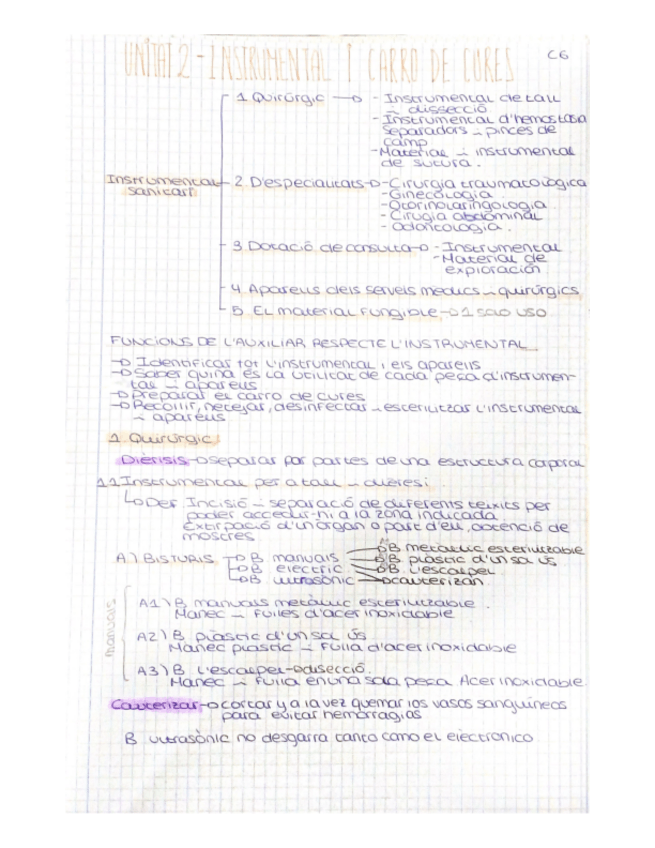 UNITAT 2 - INSTRUMENTAL I CARRO DE CURES
C6
1. Quirúrgic → - Instrumental de tall i dissecció
- Instrumental d'hemostasia
Separadors i pinces de camp
- Material i instrumental de sutura.
Instrumental sanitari
2. D'especialitats → - Cirurgia traumatològica
- Ginecologia
- Otorinolaringologia.
- Cirugia abdominal
- Odontologia.
3 Dotació de consulta → - Instrumental
- Material de exploración
4 Aparells dels serveis mèdics i quirúrgics
5. EL material Fungible → 1 solo uso
FUNCIONS DE L'AUXILIAR RESPECTE L'INSTRUMENTAL
→ Identificar tot l'instrumental i els aparells
→ Saber quina és la utilitat de cada peça d'instrumen-
tal i aparells
→ Preparar el carro de cures
→ Recollir, netejar, desinfectar i esterilitzar l'instrumental
i aparells
1. Quirúrgic
Dièrisis → separar por partes de una estructura corporal
1.1 Instrumental per a tall i dièresi:
↳ Def Incisió i separació de diferents teixits per
poder accedir-hi a la zona indicada
Extirpació d'un òrgan o part d'ell, obtenció de
mostres
A) BISTURIS → B manuals → B metàl·lic esterilitzable
→ B plàstic d'un sol ús
→ B. l'escalpel
→ B electric
→ B. ultrasònic → cauterizan
manuals
A1) B manuals metàl·lic esterilitzable.
Mànec i fulles d'acer inoxidable
A2) B plàstic d'un sol ús
Mànec plàstic i Fulla d'acer inoxidable
A3) B l'escalpel → disecció.
Mànec i fulla en una sola peça. Acer inoxidable.
Cauterizar → cortar y a la vez quemar los vasos sanguíneos
para evitar hemorragias
B ultrasònic no desgarra tanto como el electronico